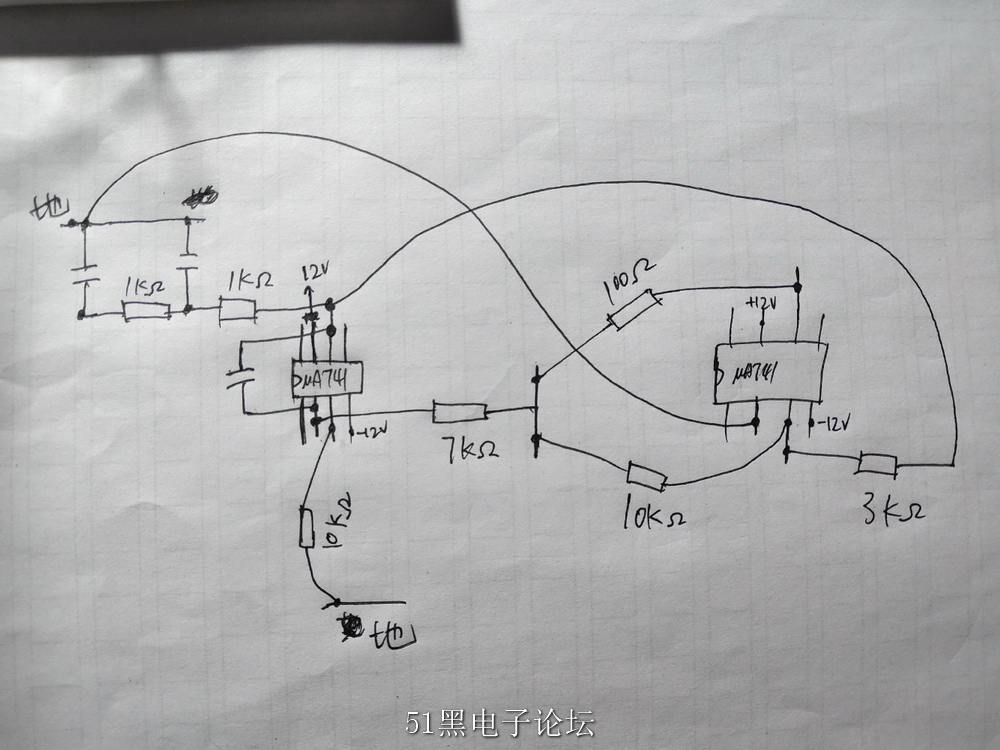 地
1KΩ
1KΩ
12V
100Ω
+12V
μA741
μA741
-12V
-12V
7KΩ
10KΩ
10KΩ
3KΩ
地
51黑电子论坛